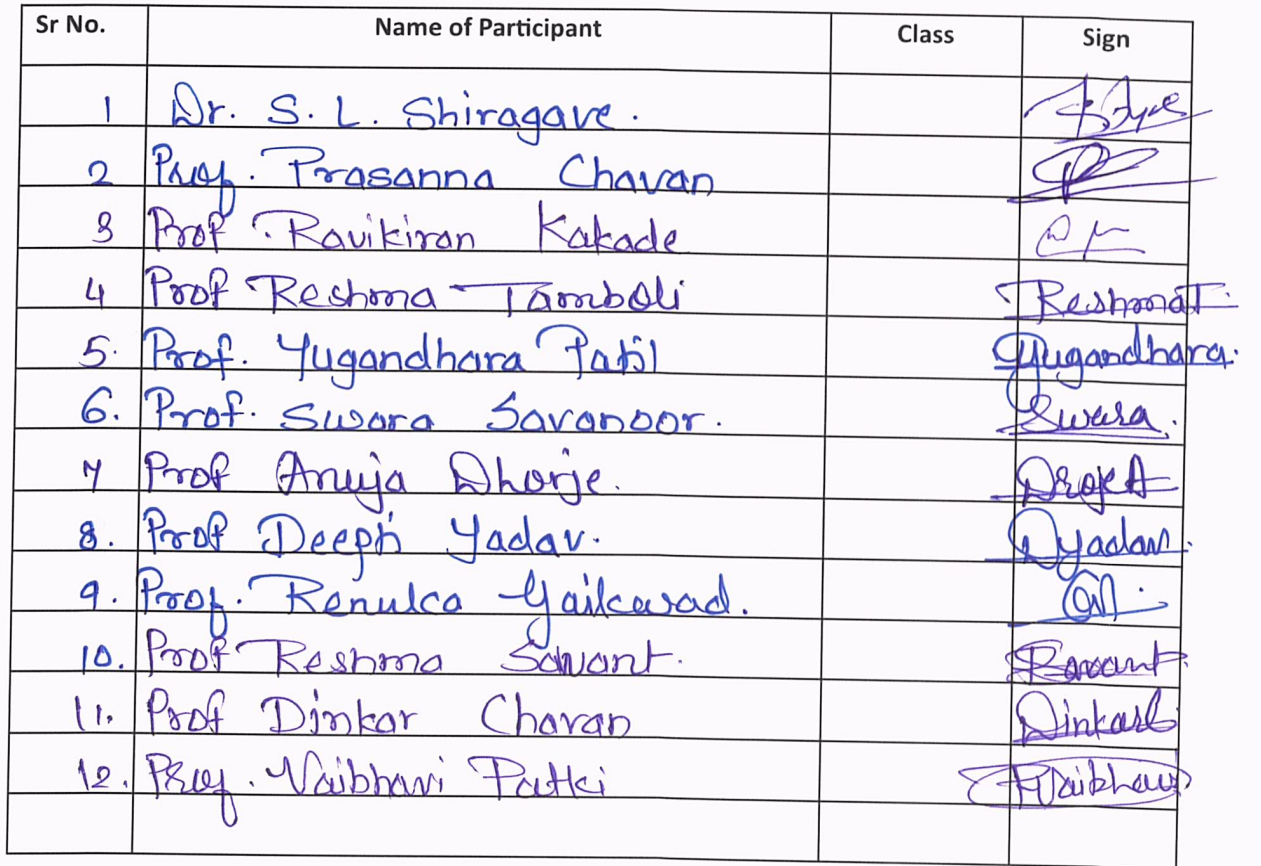 Sr No. Name of Participant Class Sign
1 Dr. S. L. Shiragave.
2 Prof. Prasanna Chavan
3 Prof. Ravikiran Kakade
4 Prof Reshma Tamboli ReshmaT.
5. Prof. Yugandhara Patil Yugandhara.
6. Prof. Swara Savanoor. Swara.
7 Prof Anuja Dhorje.
8. Prof Deepti Yadav. DYadav.
9. Prof. Renuka Gaikawad.
10. Prof Reshma Sawant. RSawant.
11. Prof Dinkar Chavan DinkarC
12. Prof. Vaibhavi Patki Vaibhavi